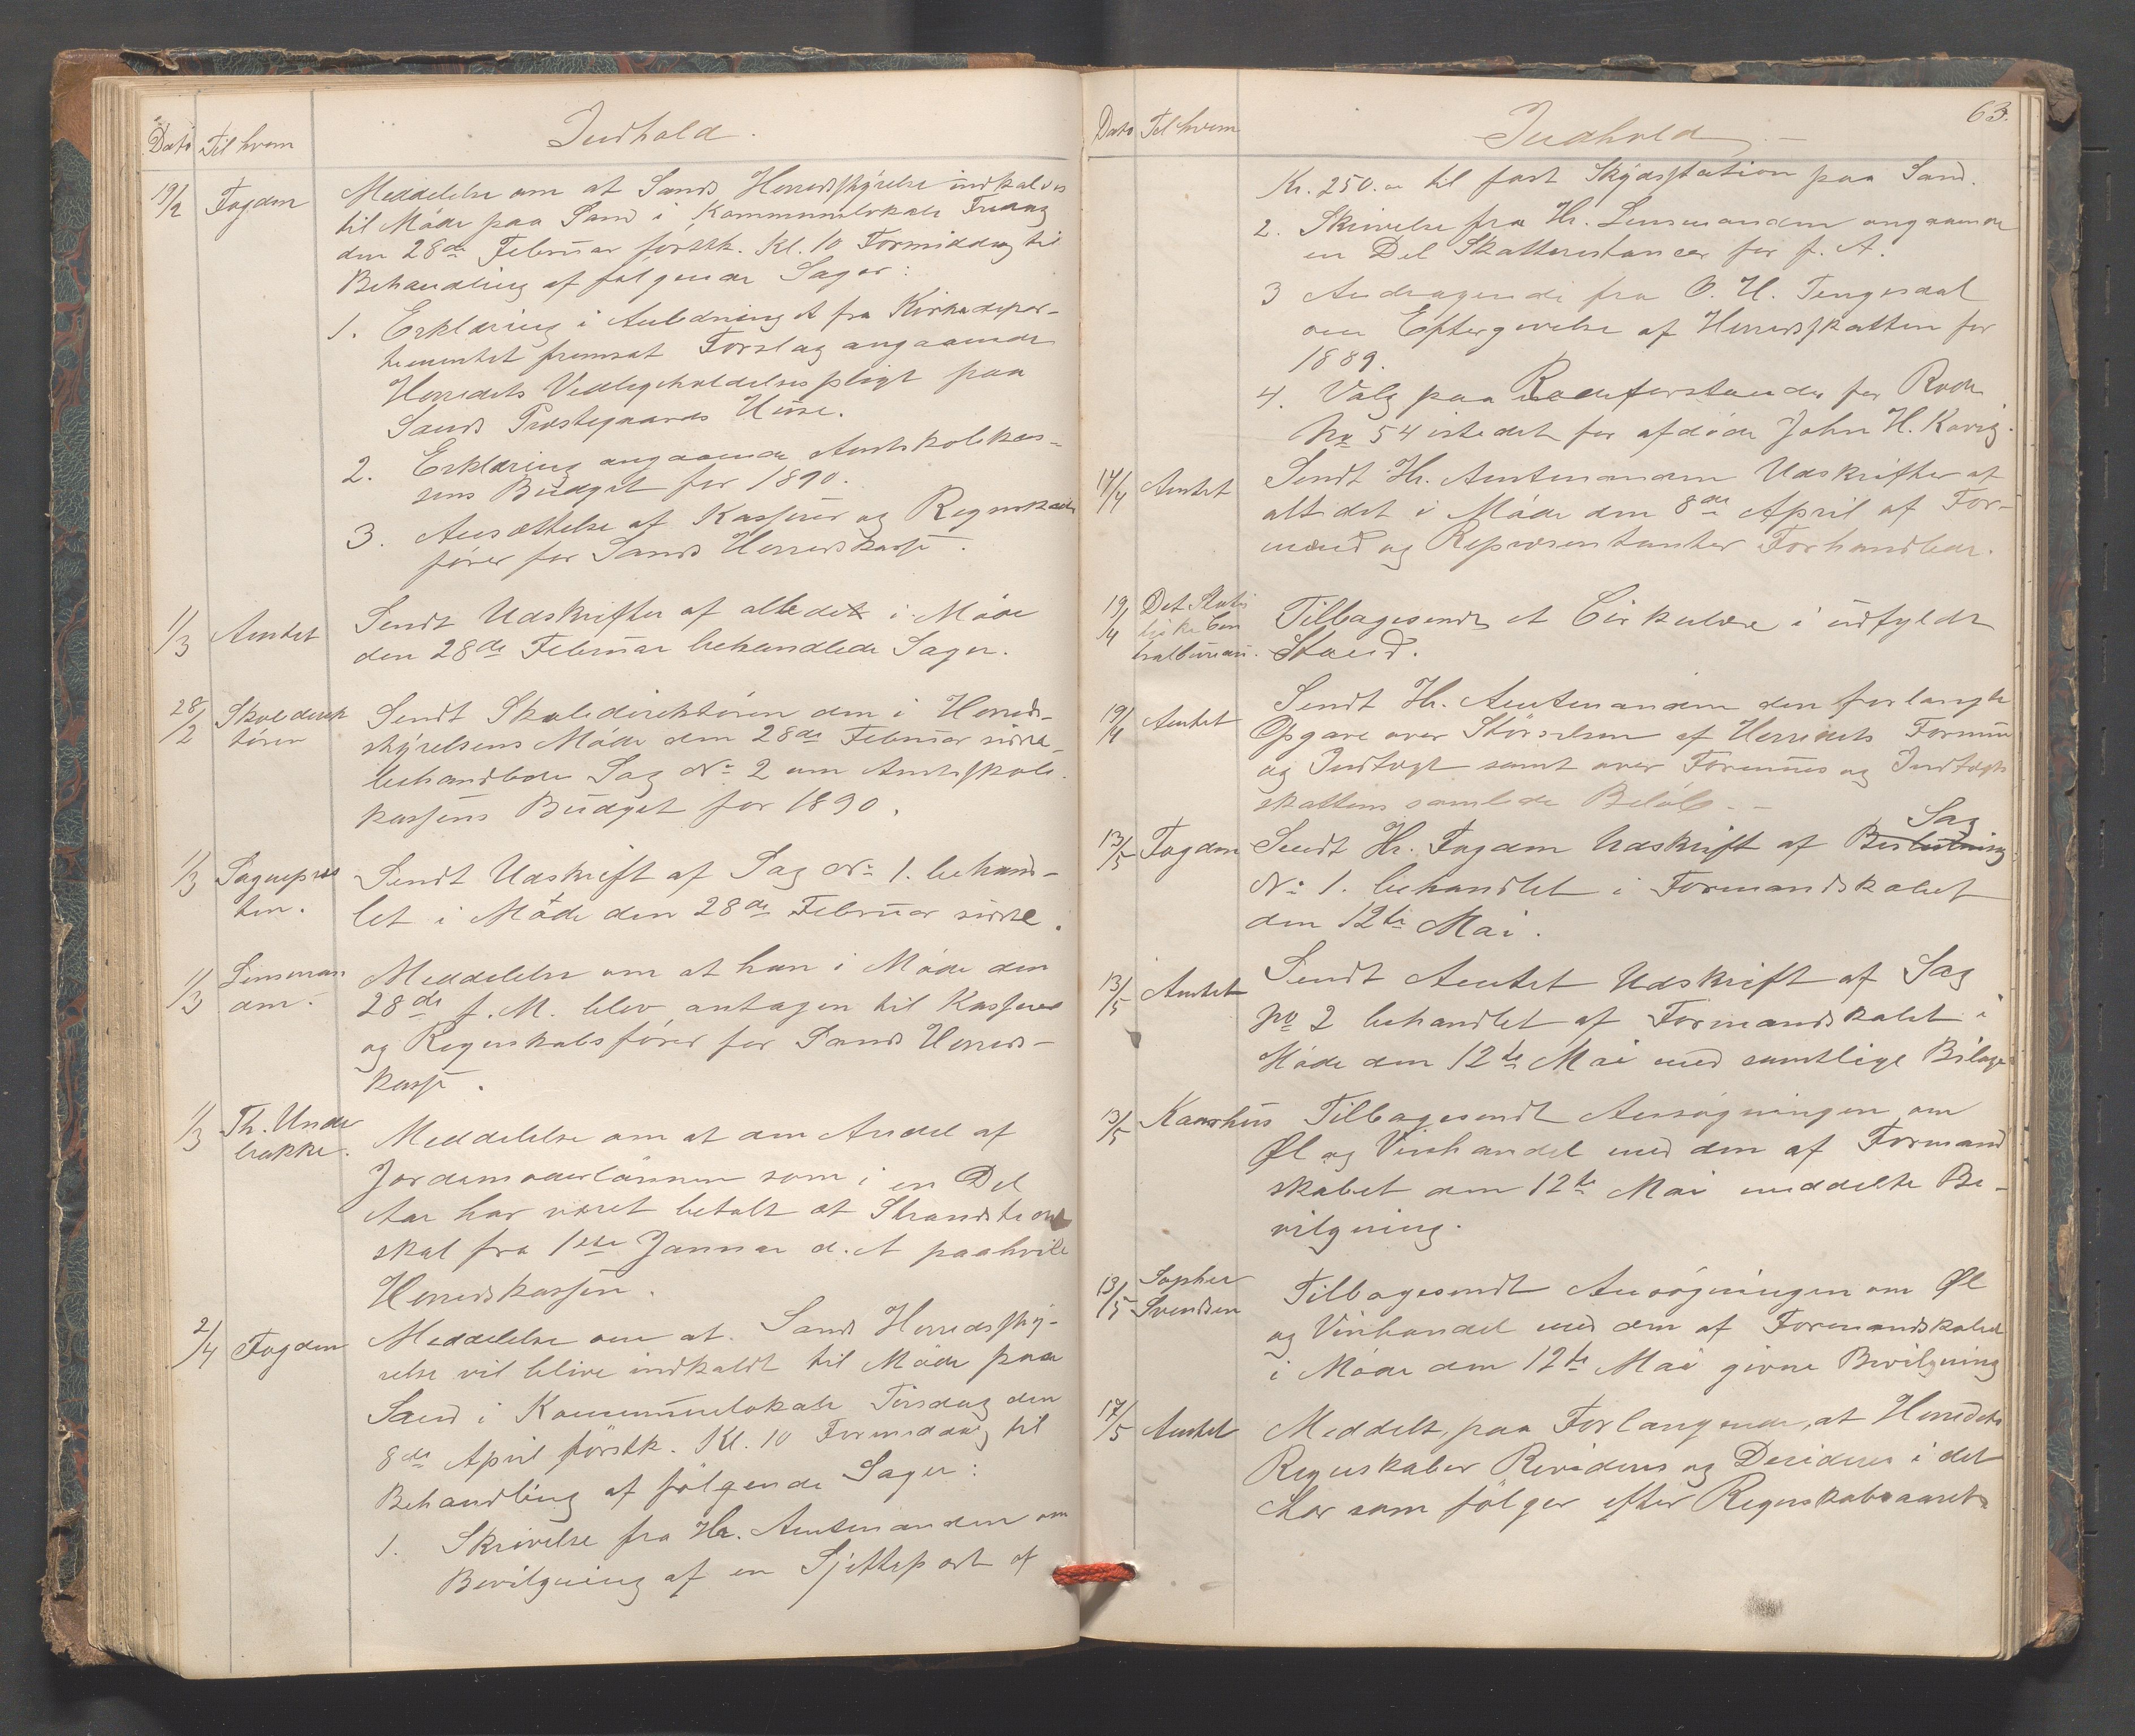 Dato Til hvem Indhold.
19/2 Fogden Meddelelse om at Sands Herredsstyrelse indkaldes
til Møde paa Sand i Kommunelokale Fredag
den 28de Februar førstk. Kl. 10 Formiddag til
Behandling af følgende Sager:
1. Erklæring i Anledning et fra Kirkedepar-
tementet fremsat Forslag angaaende
Herredets Vedligeholdelsespligt paa
Sands Præstegaards Huse.
2. Erklæring angaaende Amtskolekas-
sens Budget for 1890.
3. Ansættelse af Kasserer og Regnskabs
fører for Sands Herredskasse.
1/3 Amtet Sendt Udskrifter af alle de i Møde
den 28de Februar behandlede Sager.
28/2 Skoledirek
tøren Sendt Skoledirektøren den i Herreds-
styrelsens Møde den 28de Februar sidstl.
behandlede Sag No 2 om Amtsskole-
kassens Budget for 1890.
1/3 Sognepræs
ten. Sendt Udskrift af Sag No 1. behand-
let i Møde den 28de Februar sidstl.
1/3 Lensman
den. Meddelelse om at han i Møde den
28de f. M. blev antagen til Kasserer
og Regnskabsfører for Sands Herreds-
kasse.
1/3 Th. Under
bakke. Meddelelse om at den Andel af
Jordemoderlønnen som i en Del
Aar har været betalt at Strandsted
skal fra 1ste Januar d. A paahvile
Herredskassen.
2/4 Fogden Meddelelse om at Sands Herredssty-
relse vil blive indkaldt til Møde paa
Sand i Kommunelokale Tirsdag den
8de April førstk. Kl. 10 Formiddag til
Behandling af følgende Sager:
1. Skrivelse fra Hr. Amtmanden om
Bevilgning af en Sjettepart af
63.
Dato Til hvem Indhold
Kr. 250.00 til fast Skydsstation paa Sand.
2. Skrivelse fra Hr. Lensmanden angaaende
en Del Skatterestancer for f. A.
3 Andragende fra O. H. Tengesdal
om Eftergivelse af Herredsskatten for
1889.
4. Valg paa Rodeforstander for Rode
No 54 istedet for afdøde John H. Kvrig.
17/4 Amtet Sendt Hr. Amtmanden Udskrifter af
alt det i Møde den 8de April af For-
mænd og Repræsentanter Forhandlede.
19/4 Det Stati
stiske Cen
tralbureau. Tilbagesendt et Cirkulære i udfyldt
Stand.
19/4 Amtet Sendt Hr. Amtmanden den forlangte
Opgave over Størrelsen af Herredets Formue
og Indtægt samt over Formues og Indtægts
skattens samlede Beløb.
13/5 Fogden Sendt Hr. Fogden Udskrift af Beslutning Sag
No 1. behandlet i Formandskabet
den 12te Mai.
13/5 Amtet Sendt Amtet Udskrift af Sag
No 2 behandlet af Formandskabet i
Møde den 12te Mai med samtlige Bilage
13/5 Kaarhus Tilbagesendt Ansøgningen om
Øl og Vinhandel med den af Formand
skabet den 12te Mai meddelte Be-
vilgning.
13/5 Sopher
Svendsen Tilbagesendt Ansøgningen om Øl
og Vinhandel med den af Formandskabet
i Møde den 12te Mai givne Bevilgning
17/5 Amtet Meddelt, paa Forlangende, at Herredets
Regnskaber Revideres og Decideres i det
Aar som følger efter Regnskabsaaret